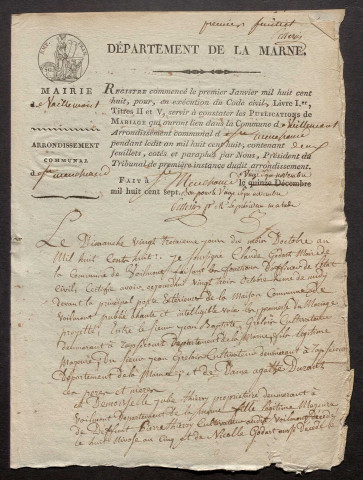 premier feuillet
DÉPARTEMENT DE LA MARNE.
MAIRIE
de Voillemont
ARRONDISSEMENT
COMMUNAL
REGISTRE commencé le premier Janvier mil huit cent
huit, pour, en exécution du Code civil, Livre I.er,
Titres II et V, servir à constater les PUBLICATIONS DE
MARIAGE qui auront lieu dans la Commune de Voillemont
Arrondissement communal de Ste menehould
pendant ledit an mil huit cent huit, contenant deux
feuillets, cotés et paraphés par Nous, Président du
Tribunal de première instance dudit arrondissement.
FAIT à Ste Menehould le quinze Décembre
mil huit cent sept.
Le Dimanche vingt troisieme jour du mois Doctobre an
Mil huit Cent huit: je soussigné Claude Godart Maire de
la Commune de Voilmont faisant les fonctions D'officier de L'Etat
Civil Certifie avoir cejourdhuy vingt trois Octobre
devant la principal porte Exterieure de la Maison Commune de
Voilmont publié à haute et intelligible voix la premiere du Mariage
projetté Entre le Sieur jean Baptiste Cultivateur
Demeurant à Département de la Marne fils légitime
Majeur du Sieur jean Cultivateur demeurant à
Département de la Marne et de Dame agathe
Ses pere et mere
Et Demoiselle julie thiery propriétaire demeurant à
Voilmont Departement de la Marne fille légitime Majeure
de Deffunt Pierre thiery Cultivateur audit Voilmont décédé
le huit Nivose an Cinq et de Nicolle Godart aussi décédée le